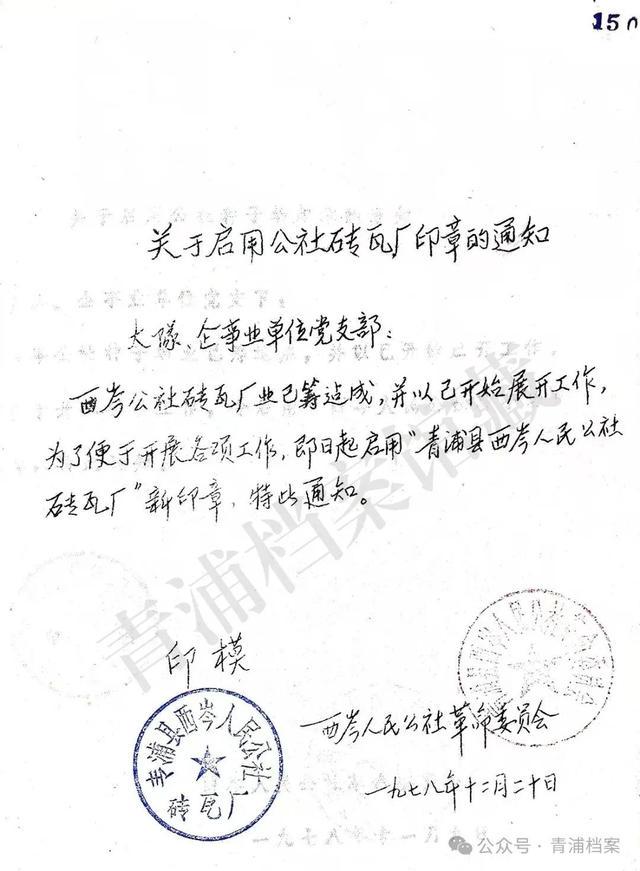 150
关于启用公社砖瓦厂印章的通知
大隊、企事业单位党支部：
西岑公社砖瓦厂业已筹造成，并以已开始展开工作，
为了便于开展各项工作，即日起启用“青浦县西岑人民公社
砖瓦厂”新印章，特此通知。
印模
青浦县西岑人民公社
砖瓦厂
西岑人民公社革命委员会
一九七八年十二月二十日
青浦档案馆藏
公众号·青浦档案